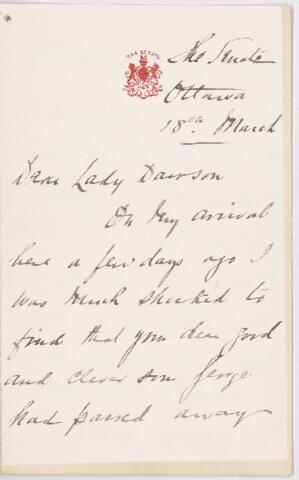 THE SENATE
The Senate
Ottawa
18th March
Dear Lady Dawson
On my arrival
here a few days ago I
was much shocked to
find that your dear good
and clever son George
had passed away